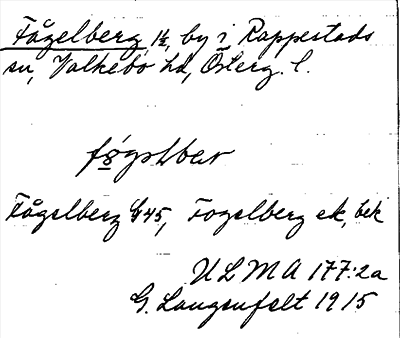 Fågelberg 1½, by i Rappestads
sn, Valkebo hd, Österg. l.
Fågelberg G45, Fogelberg ek, bek
ULMA 177:2a
G. Langenfelt 1915